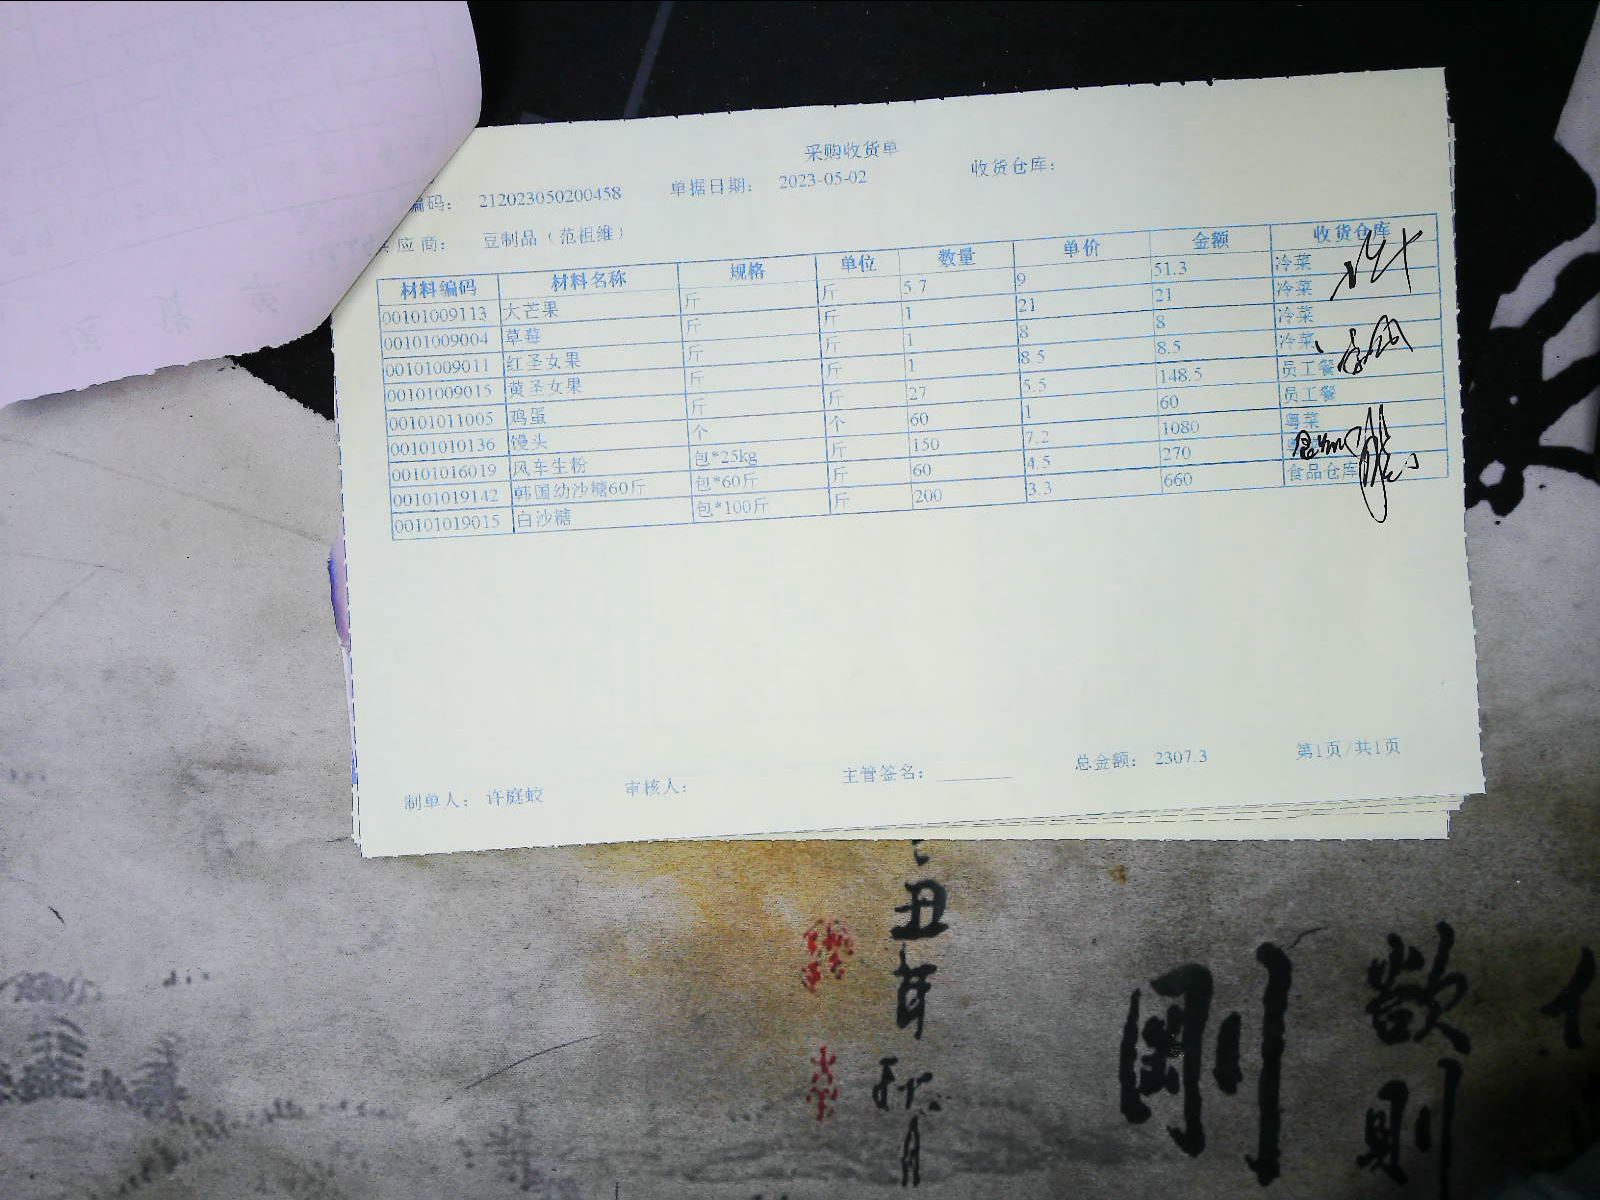 采购收货单
编码： 212023050200458 单据日期： 2023-05-02 收货仓库：
应商： 豆制品（范祖维）
材料编码 材料名称 规格 单位 数量 单价 金额 收货仓库
00101009113 大芒果 斤 斤 5.7 9 51.3 冷菜
00101009004 草莓 斤 斤 1 21 21 冷菜
00101009011 红圣女果 斤 斤 1 8 8 冷菜
00101009015 黄圣女果 斤 斤 1 8.5 8.5 冷菜
00101011005 鸡蛋 斤 斤 27 5.5 148.5 员工餐
00101010136 馒头 个 个 60 1 60 员工餐
00101016019 风车生粉 包*25kg 斤 150 7.2 1080 粤菜
00101019142 韩国幼沙糖60斤 包*60斤 斤 60 4.5 270
00101019015 白沙糖 包*100斤 斤 200 3.3 660 食品仓库
制单人： 许庭蛟 审核人： 主管签名： 总金额： 2307.3 第1页/共1页
丑年
月
剛
欲
則